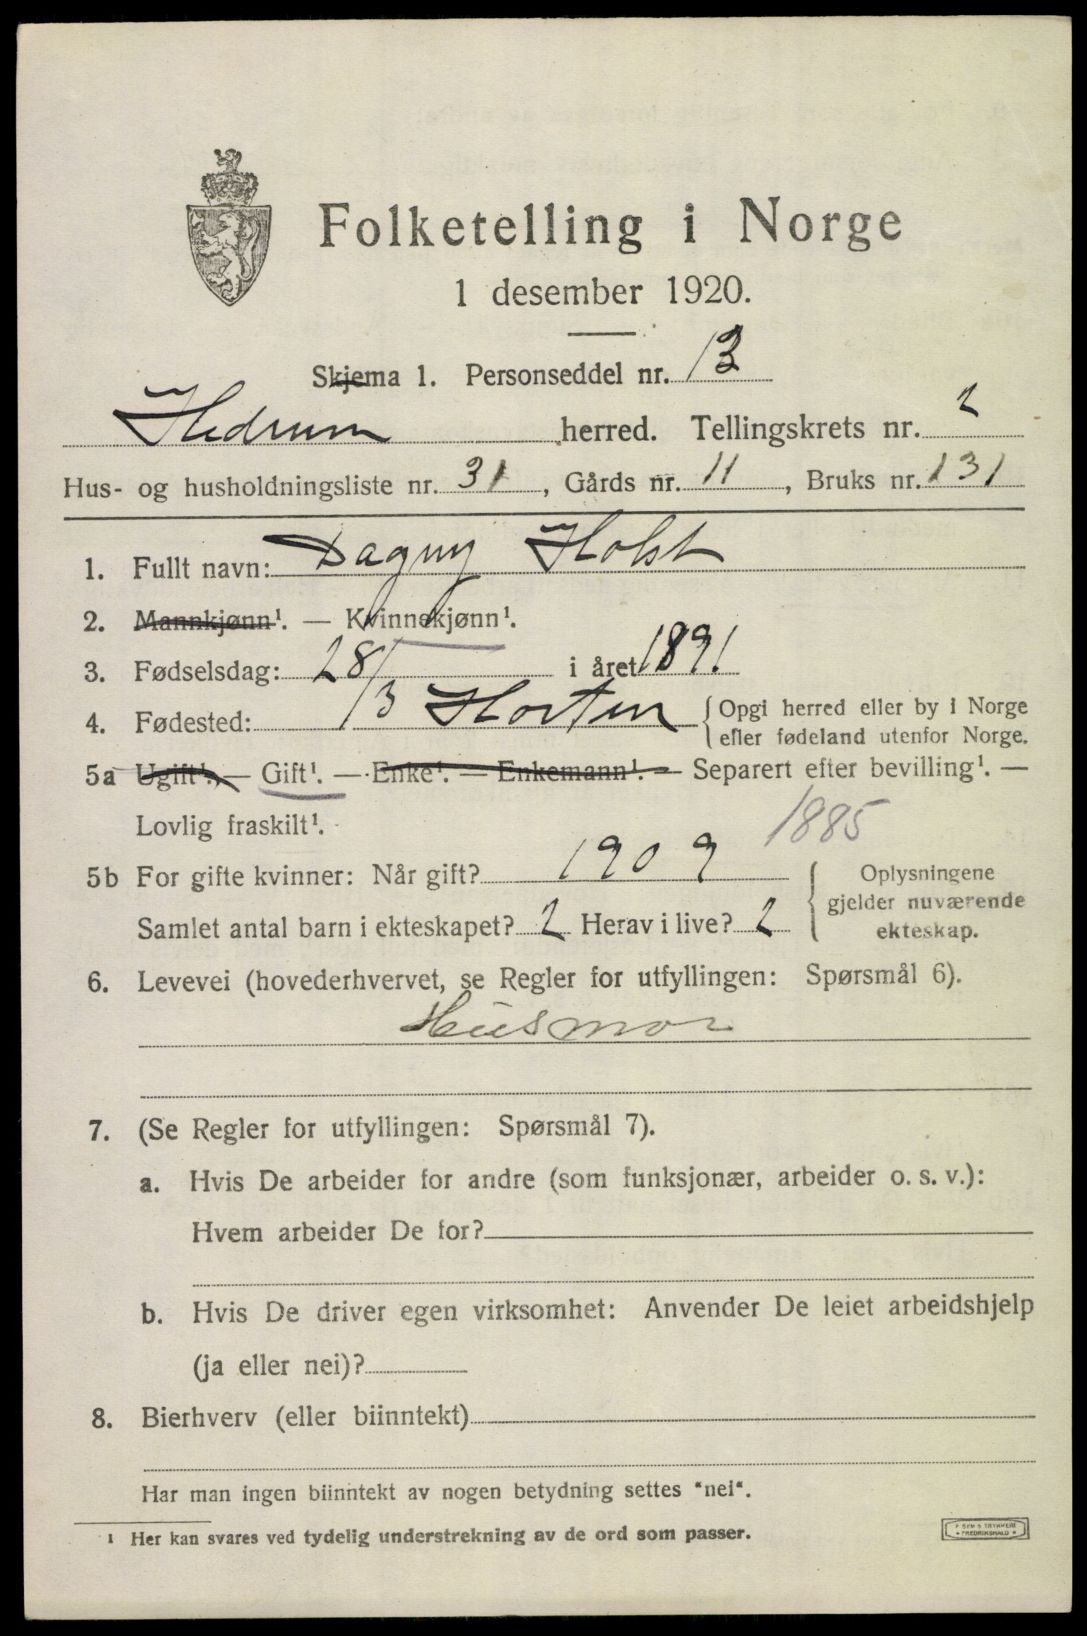 Folketelling i Norge
1 desember 1920.
Skjema 1. Personseddel nr. 13
Hedrum herred. Tellingskrets nr. 2
Hus- og husholdningsliste nr. 31, Gårds nr. 11, Bruks nr. 131
1. Fullt navn: Dagny Holst
2. Mannkjønn¹. — Kvinnekjønn¹.
3. Fødselsdag: 28/3 i året 1891
4. Fødested: Horten {Opgi herred eller by i Norge
eller fødeland utenfor Norge.
5a Ugift¹, — Gift¹. — Enke¹. — Enkemann¹. — Separert efter bevilling¹. —
Lovlig fraskilt¹. 1885
5b For gifte kvinner: Når gift? 1909 { Oplysningene
gjelder nuværende
Samlet antal barn i ekteskapet? 2 Herav i live? 2 ekteskap.
6. Levevei (hovederhvervet, se Regler for utfyllingen: Spørsmål 6).
Husmor
7. (Se Regler for utfyllingen: Spørsmål 7).
a. Hvis De arbeider for andre (som funksjonær, arbeider o. s. v.):
Hvem arbeider De for?
b. Hvis De driver egen virksomhet: Anvender De leiet arbeidshjelp
(ja eller nei)?
8. Bierhverv (eller biinntekt)
Har man ingen biinntekt av nogen betydning settes "nei".
¹ Her kan svares ved tydelig understrekning av de ord som passer.
E SEM'S TRYKKERI
• FREDRIKSHALD •